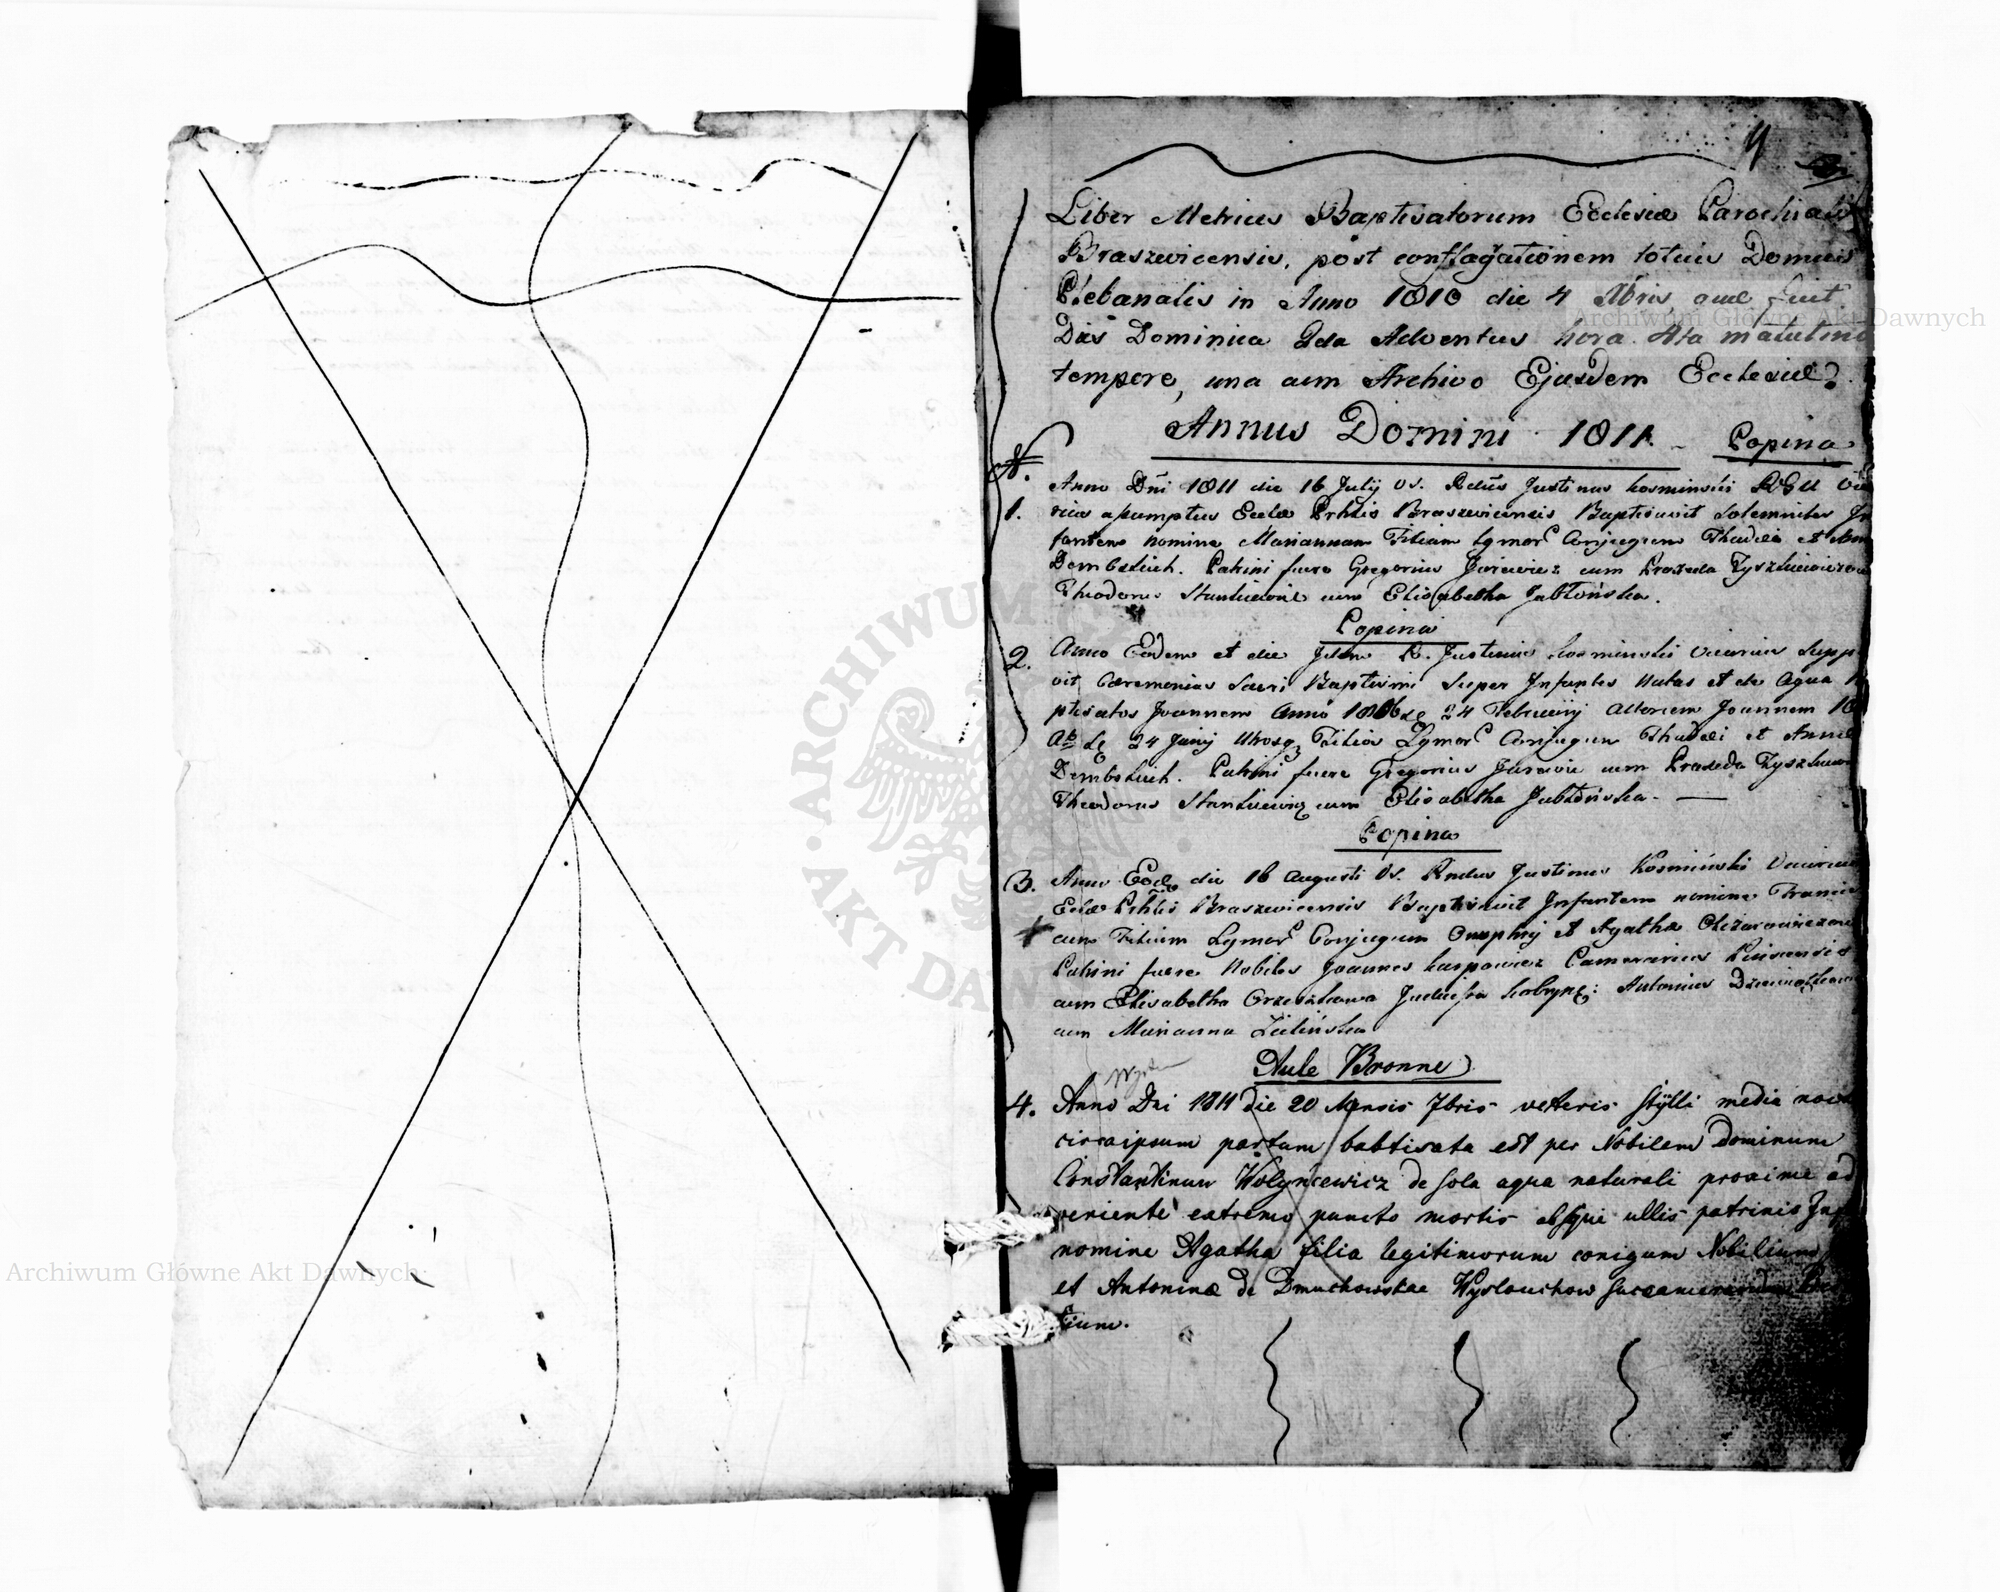 4
Liber Metrices Baptisatorum Ecclesiæ Parochialis
Braszewicensis, post conflagrationem totius Domus
Plebanalis in Anno 1810 die 4 Xbris quæ fuit
Dies Dominica 2da Adventus hora 8ta matutino
tempore, una cum Archivo Ejusdem Ecclesiæ.
Annus Domini 1811. Popina
N.
Anno Dni 1811 die 16 Julij VS. Rdus Justinus Kosminski
1. assumptus Eccle Prhlis Braszewicensis Baptisavit Solemniter In
fantem nomine Mariannam Filiam Lgmor Conjugum Thadei et Ann
Dembskich. Patrini fuere Gregorius Jurewicz cum Praxeda Tyszkiewiczowa
Theodorus Stankiewicz cum Elisabetha Jabłońska.
Popina
2. Anno Eodem et die Idem R. Justinus Kosminski Vicarius Supp
vit Cæremonias Sacri Baptismi Super Infantes Natos et de Aqua
ptisatos Joannem Anno 1806 de 24 Februarij alterum Joannem 18
de 24 Junij Utrosq Filios Lgmor Conjugum Thadei et Annæ
Dembskich. Patrini fuere Gregorius Jurewicz cum Praxeda Tyszkiew
Theodorus Stankiewicz cum Elisabetha Jabłońska. —
Popina
3. Anno Eod die 16 Augusti VS. Rndus Justinus Kosmiński Vicarius
Eccle Prhlis Braszewicensis Baptisavit Infantem nomine Francis
cum Filium Lgmor Conjugum Onuphrij et Agathæ
Patrini fuere Nobiles Joannes Karpowicz Camerarius Pinscensis
cum Elisabetha Orzeszkowa Antonius
cum Marianna Zielińska
Aulæ Bronne
4. Anno Dni 1811 die 20 Mensis 7bris veteris Stÿlli media nocte
circa ipsum partum babtisata est per Nobilem dominum
Constantinum Wolyncewicz de sola aqua naturali proxime ad
veniente extremo puncto mortis absque ullis patrinis Inf
nomine Agatha filia legitimorum coniguum Nobilium
et Antoninæ de Dmuchowskæ Wysłouchow
tium.
Archiwum Główne Akt Dawnych
Archiwum Główne Akt Dawnych
ARCHIWUM
AKT DAW